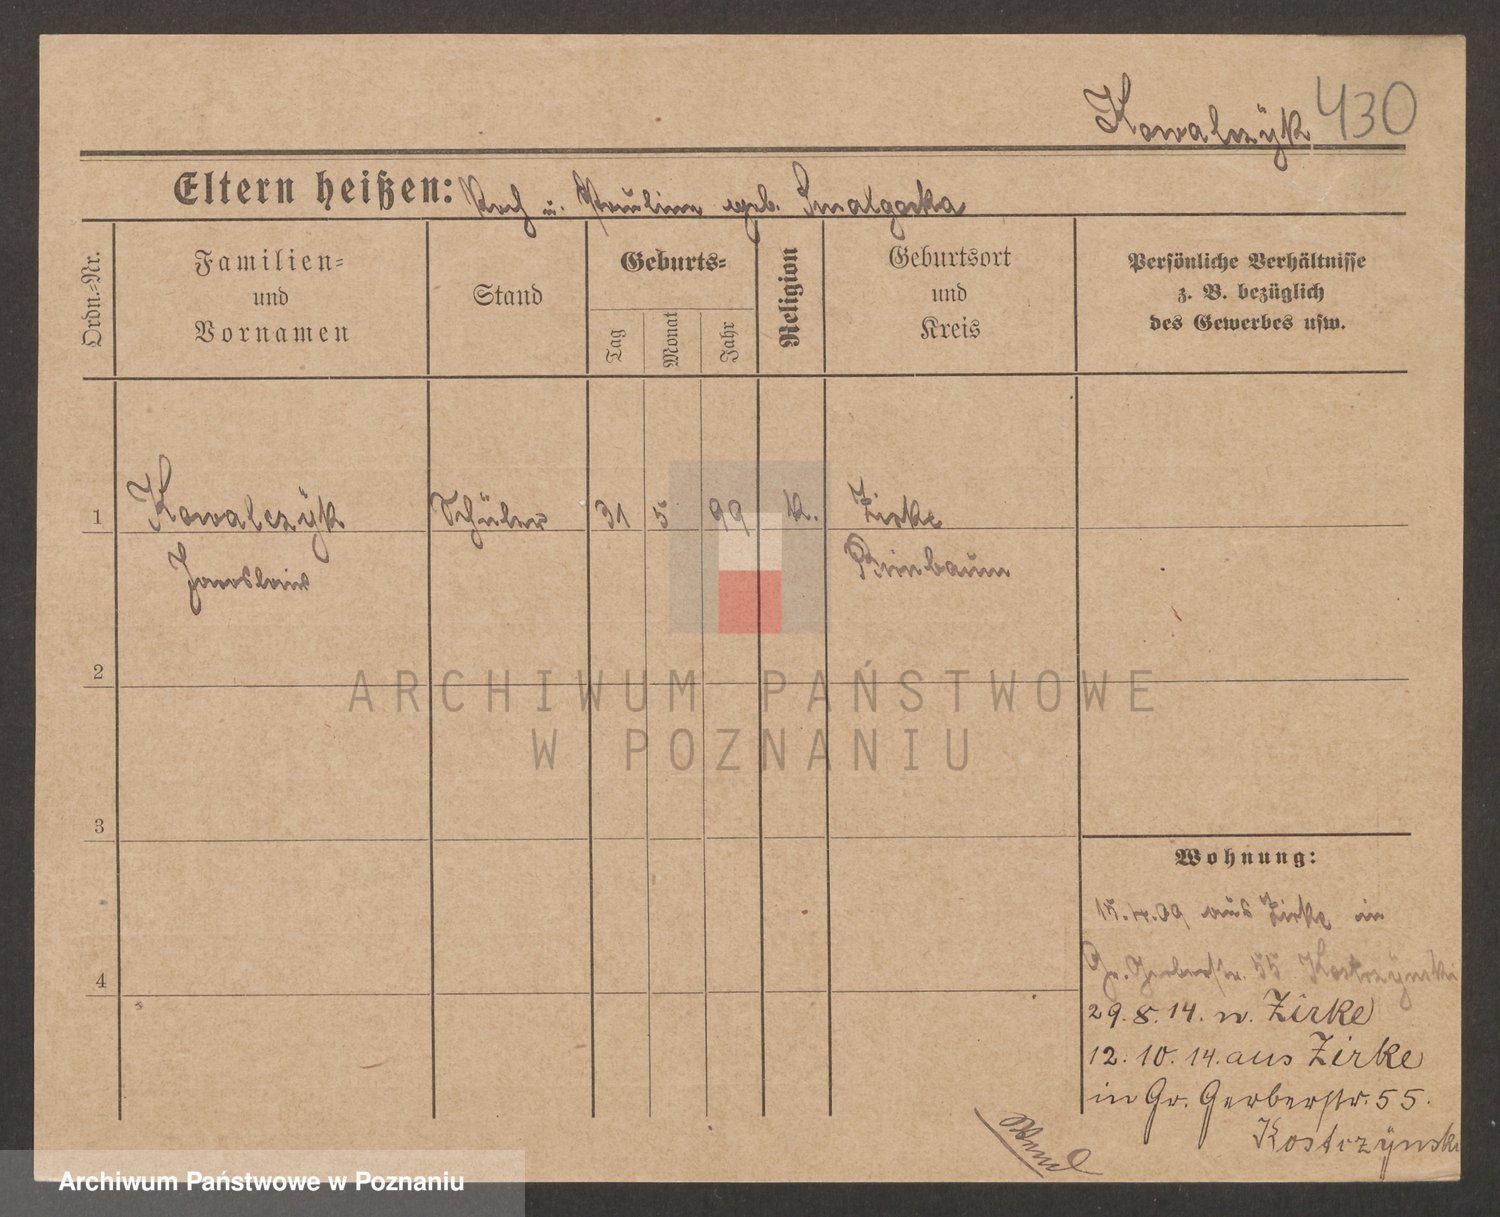 Kowalczÿk 430
Eltern heißen: Roch u. Pauline geb. Smalgocka
Ordn.-Nr.
Familien-
und
Vornamen
Stand
Geburts-
Tag
Monat
Jahr
Religion
Geburtsort
und
Kreis
Persönliche Verhältnisse
z. B. bezüglich
des Gewerbes usw.
1 Kowalczÿk Schüler 31 5 99 k. Zirke
Jaroslaus Birnbaum
2
3
4
Wohnung:
15.4.09 aus Zirke in
Gr. Gerberstr. 55 Kostrzÿnski
29.8.14. n. Zirke
12.10.14. aus Zirke
in Gr. Gerberstr. 55.
Kostrzÿnski
Wend
ARCHIWUM PAŃSTWOWE
W POZNANIU
Archiwum Państwowe w Poznaniu